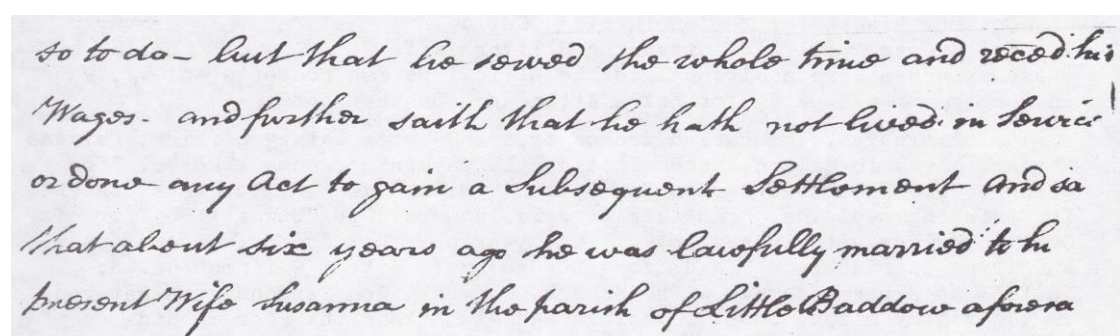 so to do - but that he served the whole time and reced. his
Wages - and further saith that he hath not lived in Service
or done any Act to gain a Subsequent Settlement and sa
that about six years ago he was lawfully married to hi
present Wife Susanna in the parish of Little Baddow aforesa